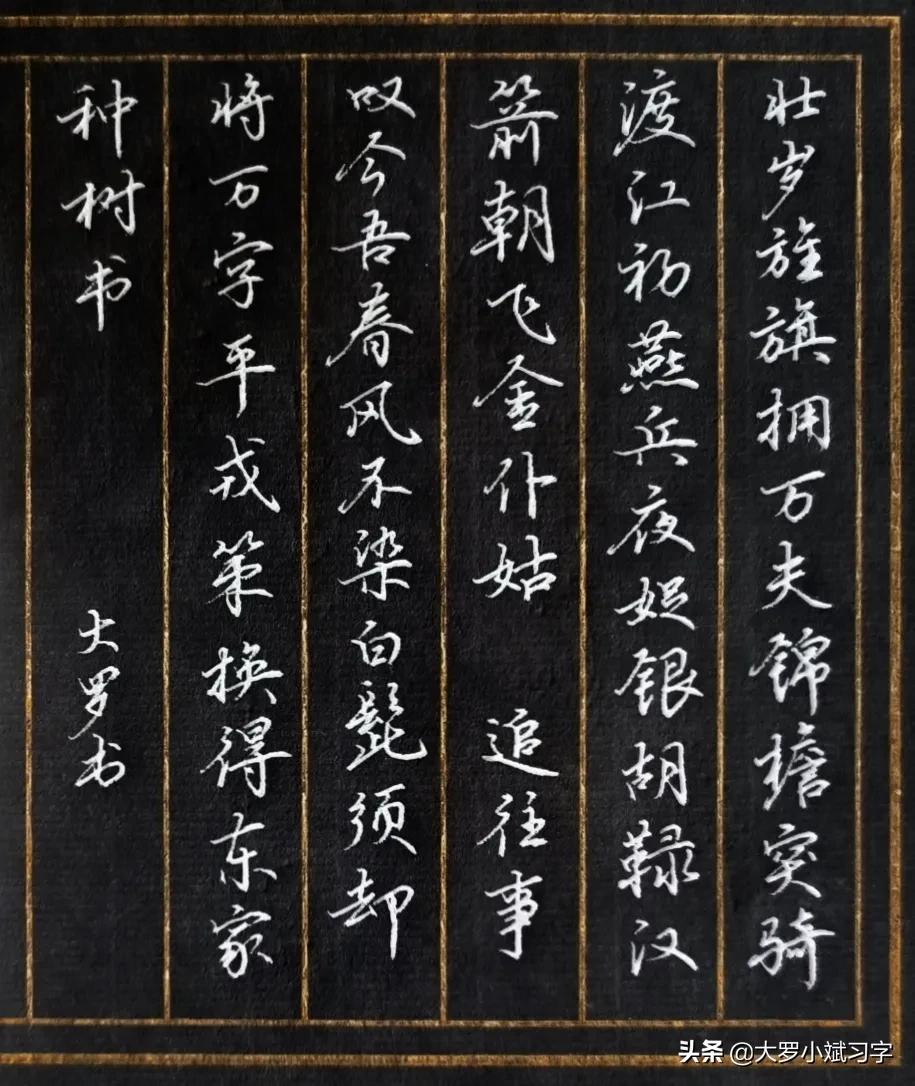 壮岁旌旗拥万夫锦襜突骑
渡江初燕兵夜娖银胡䩮汉
箭朝飞金仆姑 追往事
叹今吾春风不染白髭须却
将万字平戎策换得东家
种树书
大罗书
头条 @大罗小斌习字